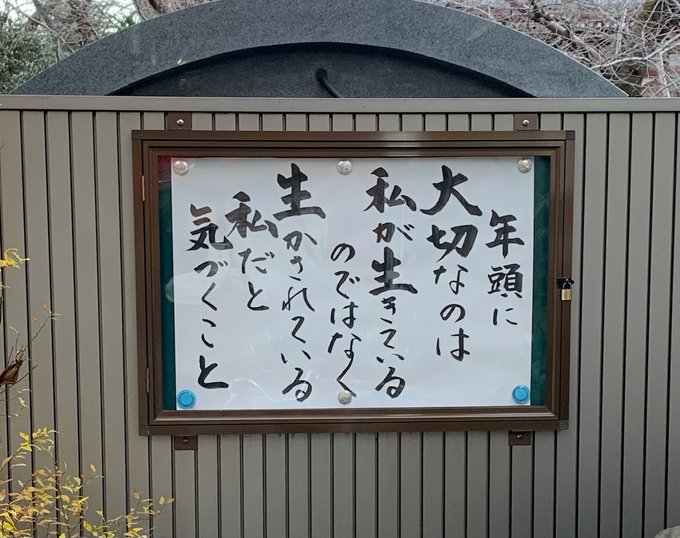 年頭に
大切なのは
私が生きている
のではなく
生かされている
私だと
気づくこと